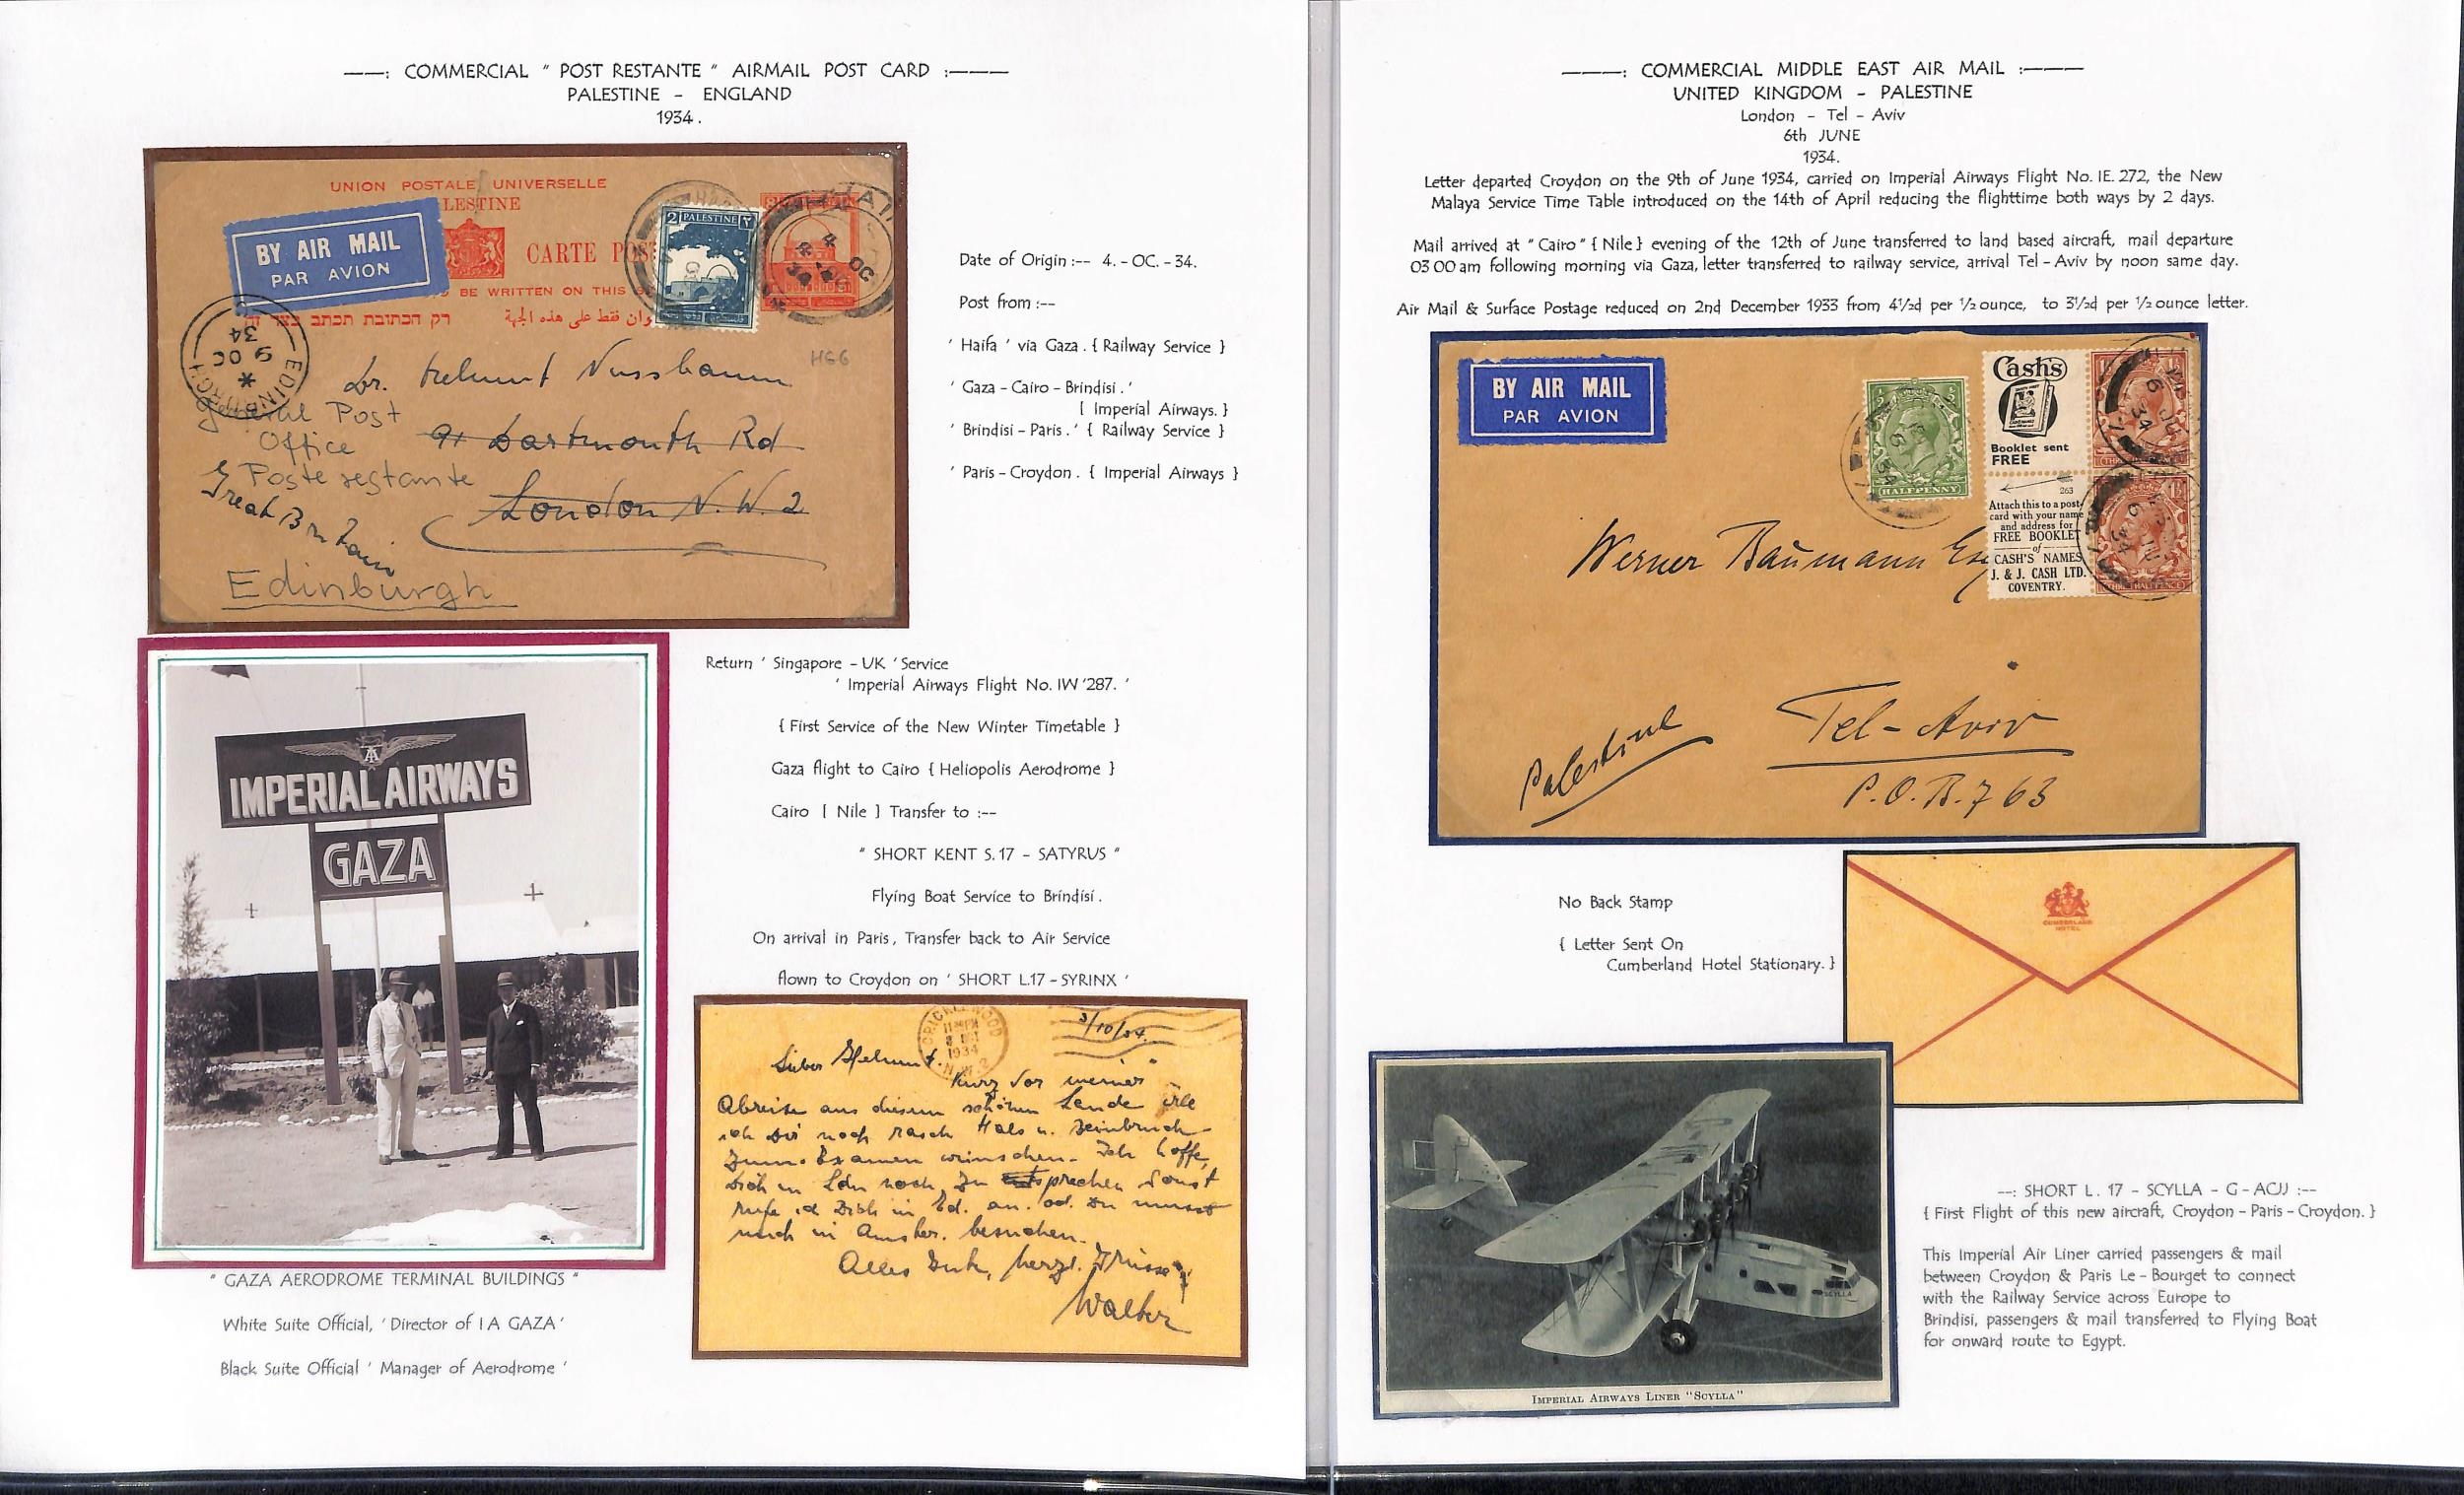 ——: COMMERCIAL " POST RESTANTE " AIRMAIL POST CARD :———
PALESTINE - ENGLAND
1934.
UNION POSTALE UNIVERSELLE
LESTINE
BY AIR MAIL
PAR AVION
CARTE POS
BE WRITTEN ON THIS S
רק הכתובת תכתב בצד זה
وان فقط على هذه الجهة
2 PALESTINE ٢
4 OC
34
EDINBURGH
9 OC
34
H66
Dr. Helmut Nussbaum
General Post
Office
91 Dartmouth Rd
Poste restante
London N.W.2
Great Britain
Edinburgh
Date of Origin :-- 4. - OC. - 34.
Post from :--
' Haifa ' via Gaza . { Railway Service }
' Gaza - Cairo - Brindisi . '
{ Imperial Airways. }
' Brindisi - Paris . ' { Railway Service }
' Paris - Croydon . { Imperial Airways }
IMPERIAL AIRWAYS
GAZA
Return ' Singapore - UK ' Service
' Imperial Airways Flight No. IW '287. '
{ First Service of the New Winter Timetable }
Gaza flight to Cairo { Heliopolis Aerodrome }
Cairo [ Nile ] Transfer to :--
" SHORT KENT S.17 - SATYRUS "
Flying Boat Service to Brindisi .
On arrival in Paris, Transfer back to Air Service
flown to Croydon on ' SHORT L.17 - SYRINX '
CRICKLEWOOD
1934
N.W.2
3/10/34.
Lieber Helmut.
Kurz vor meiner
Abreise aus diesem schönen Lande
ich Dir noch rasch Hals u. Beinbruch
zum Examen wünschen. Ich hoffe,
Dich in Ldn noch zu sprechen sonst
rufe ich Dich in Ed. an. od. Du musst
mich in Amster. besuchen.
Alles Gute, herzl. Grüsse
Walter
" GAZA AERODROME TERMINAL BUILDINGS "
White Suite Official, ' Director of I A GAZA '
Black Suite Official ' Manager of Aerodrome '
———: COMMERCIAL MIDDLE EAST AIR MAIL :———
UNITED KINGDOM - PALESTINE
London - Tel - Aviv
6th JUNE
1934.
Letter departed Croydon on the 9th of June 1934, carried on Imperial Airways Flight No. IE. 272, the New
Malaya Service Time Table introduced on the 14th of April reducing the flighttime both ways by 2 days.
Mail arrived at " Cairo " { Nile } evening of the 12th of June transferred to land based aircraft, mail departure
03 00 am following morning via Gaza, letter transferred to railway service, arrival Tel - Aviv by noon same day.
Air Mail & Surface Postage reduced on 2nd December 1933 from 4½d per ½ ounce, to 3½d per ½ ounce letter.
BY AIR MAIL
PAR AVION
HALFPENNY
Cash's
Booklet sent
FREE
263
Attach this to a post-
card with your name
and address for
FREE BOOKLET
of
CASH'S NAMES
J. & J. CASH LTD.
COVENTRY.
6 JU
34
Werner Baumann Esq
Tel-Aviv
Palestine
P.O.B. 763
No Back Stamp
{ Letter Sent On
Cumberland Hotel Stationary. }
CUMBERLAND
HOTEL
SCYLLA
IMPERIAL AIRWAYS LINER "SCYLLA"
--: SHORT L. 17 - SCYLLA - G - ACJJ :--
{ First Flight of this new aircraft, Croydon - Paris - Croydon. }
This Imperial Air Liner carried passengers & mail
between Croydon & Paris Le - Bourget to connect
with the Railway Service across Europe to
Brindisi, passengers & mail transferred to Flying Boat
for onward route to Egypt.